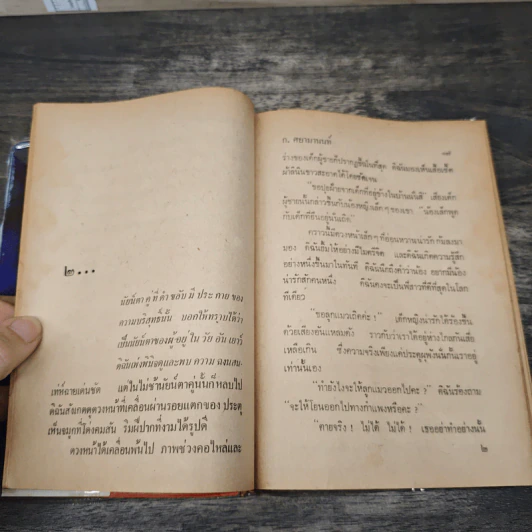 ๒...
นัยน์ตา คู่ ที่ ดำ ขลับ มี ประ กาย ของ
ความบริสุทธิ์นั้น บอกให้ทราบได้ว่า
เป็นนัยน์ตาของผู้ อยู่ ใน วัย อัน เยาว์
ดิฉันเพ่งพินิจดูและพบ ความ ฉงนสน-
เท่ห์ฉายเด่นชัด แต่ในไม่ช้านัยน์ตาคู่นั้นก็หลบไป
ดิฉันสังเกตดูดวงหน้าที่เคลื่อนผ่านรอยแตกของ ประตู
เห็นจมูกที่โด่งคมสัน ริมฝีปากที่งามได้รูปดี
ดวงหน้าได้เคลื่อนพ้นไป ภาพช่วงคอไหล่และ
ก. ศยามานนท์
ร่างของเด็กผู้ชายก็ปรากฏขึ้นในที่สุด ดิฉันมองเห็นเสื้อเชิ้ต
ผ้าลินินขาวสะอาดได้โดยชัดเจน
"ขอบุ๋ยฝ้ายจากเด็กที่อยู่ข้างในบ้านนั้นสิ" เสียงเด็ก
ผู้ชายนั้นกล่าวขึ้นกับน้องหญิงเล็ก ๆ ของเขา "น้องเล็กพูด
กับเด็กที่ยืนอยู่นั่นเถิด"
คราวนี้มีดวงหน้าเล็กๆ ที่อ่อนหวานน่ารักก้มลงมา
มอง ดิฉันยิ้มให้อย่างมีไมตรีจิต และดิฉันเกิดความรู้สึก
อย่างหนึ่งขึ้นมาในทันที ดิฉันนึกถึงคำว่าน้อง อยากมีน้อง
น่ารักสักคนหนึ่ง ดิฉันคงจะเป็นพี่สาวที่ดีที่สุดในโลก
ทีเดียว
"ขอลูกแมวเถิดค่ะ !" เด็กหญิงน่ารักได้ร้องขึ้น
ด้วยเสียงอันแหลมดัง ราวกับว่าเราได้อยู่ห่างไกลกันเสีย
เหลือเกิน ซึ่งความจริงเพียงแค่ประตูพังนั้นกั้นเราอยู่
เท่านั้นเอง
"ทำยังไงจะให้ลูกแมวออกไปคะ ?" ดิฉันร้องถาม
"จะให้โยนออกไปทางกำแพงหรือคะ ?"
"ตายจริง ! ไม่ได้ ไม่ได้ ! เธออย่าทำอย่างนั้น
๒